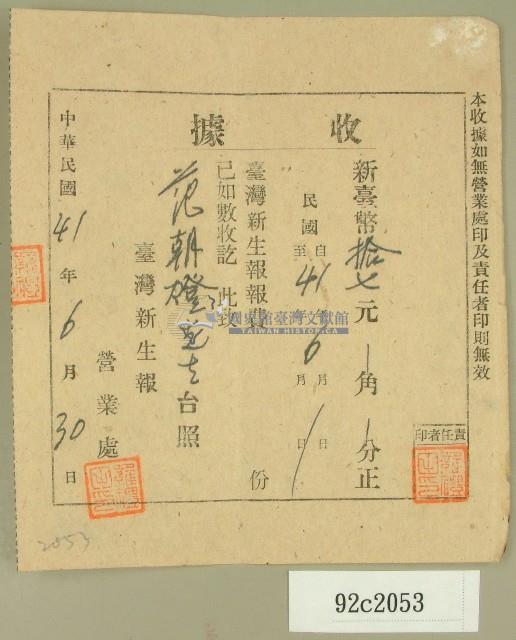 本收據如無營業處印及責任者印則無效
收據
新臺幣拾七元 角 分正
民國自41年6月 日
至 年 月 日
臺灣新生報報費 份
已如數收訖 此致
范朝燈先生台照
臺灣新生報
營業處
中華民國41年6月30日
責任者印
國史館臺灣文獻館
TAIWAN HISTORICA
2053
92c2053